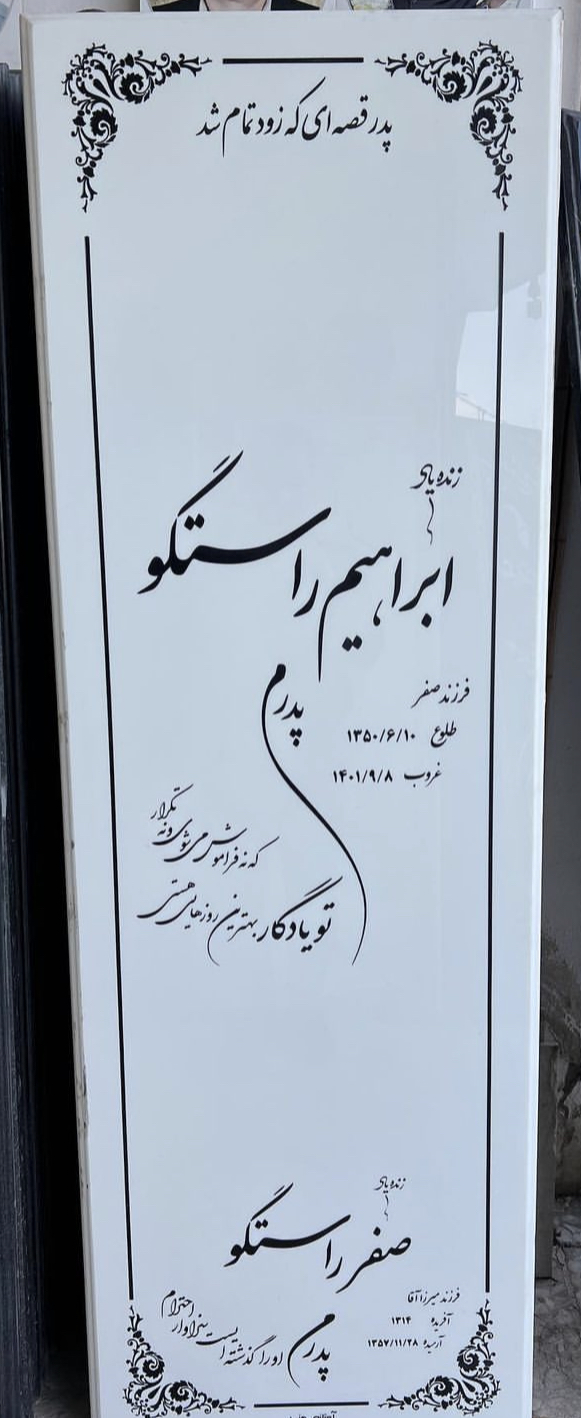 پدر قصه ای که زود تمام شد
زنده یاد
ابراهیم راستگو
فرزند صفر
طلوع ۱۳۵۰/۶/۱۰
غروب ۱۴۰۱/۹/۸
پدرم
تو یادگار بهترین روزهای هستی
که نه فراموش می شوی و نه تکرار
زنده یاد
صفر راستگو
فرزند میرزا آقا
آفریده ۱۳۱۴
آرمیده ۱۳۵۷/۱۱/۲۸
پدرم
او را گذشته ایست سزاوار احترام